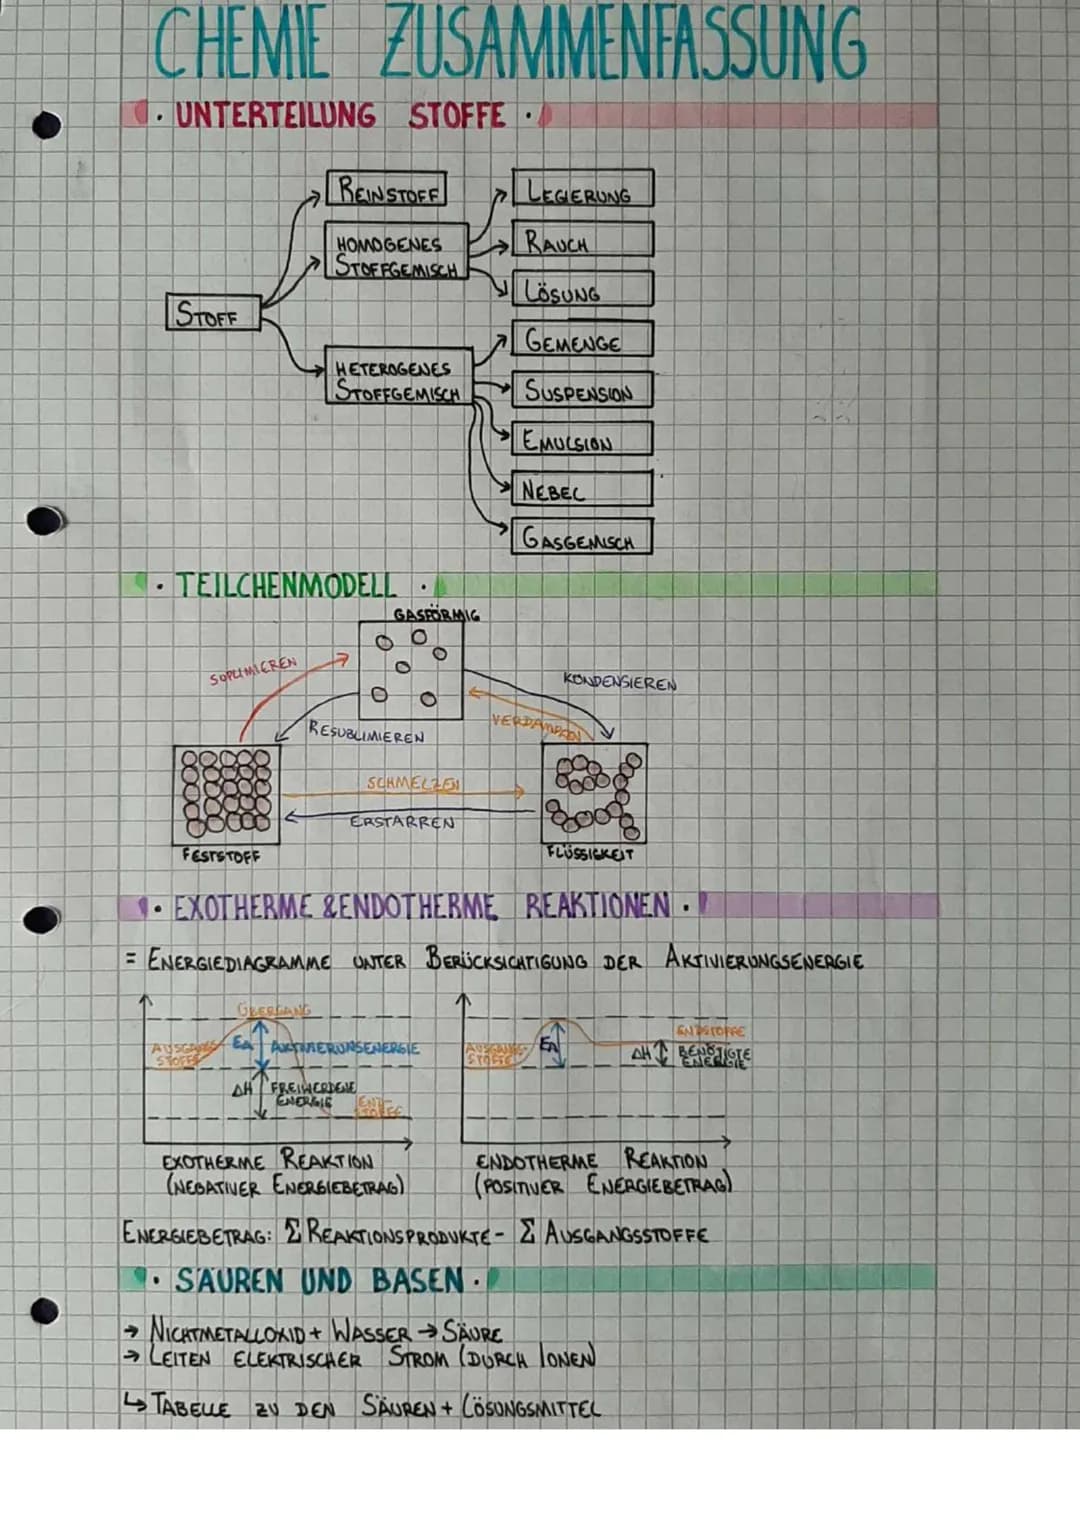 CHEMIE ZUSAMMENFASSUNG
· UNTERTEILUNG STOFFE ·
STOFF
REINSTOFF
HOMOGENES
STOFFGEMISCH
HETEROGENES
STOFFGEMISCH
LEGIERUNG
RAUCH
LÖSUNG
GEMENGE
SUSPENSION
EMULSION
NEBEL
GASGEMISCH
· TEILCHENMODELL ·
GASFÖRMIG
SOPLIMIEREN
KONDENSIEREN
RESUBLIMIEREN
VERDAMPFEN
SCHMELZEN
ERSTARREN
FESTSTOFF
FLÜSSIGKEIT
· EXOTHERME & ENDOTHERME REAKTIONEN ·
= ENERGIEDIAGRAMME UNTER BERÜCKSICHTIGUNG DER AKTIVIERUNGSENERGIE
ÜBERGANG
AUSGANGS-
STOFFE
EA AKTIVIERUNSENERGIE
ΔH FREIWERDENE
ENERGIE
END-
STOFFE
EXOTHERME REAKTION
(NEGATIVER ENERGIEBETRAG)
AUSGANGS-
STOFFE
EA
ENDSTOFFE
ΔH BENÖTIGTE
ENERGIE
ENDOTHERME REAKTION
(POSITIVER ENERGIEBETRAG)
ENERGIEBETRAG: Σ REAKTIONSPRODUKTE - Σ AUSGANGSSTOFFE
· SÄUREN UND BASEN ·
→ NICHTMETALLOXID + WASSER → SÄURE
→ LEITEN ELEKTRISCHER STROM (DURCH IONEN)
↳ TABELLE ZU DEN SÄUREN + LÖSUNGSMITTEL